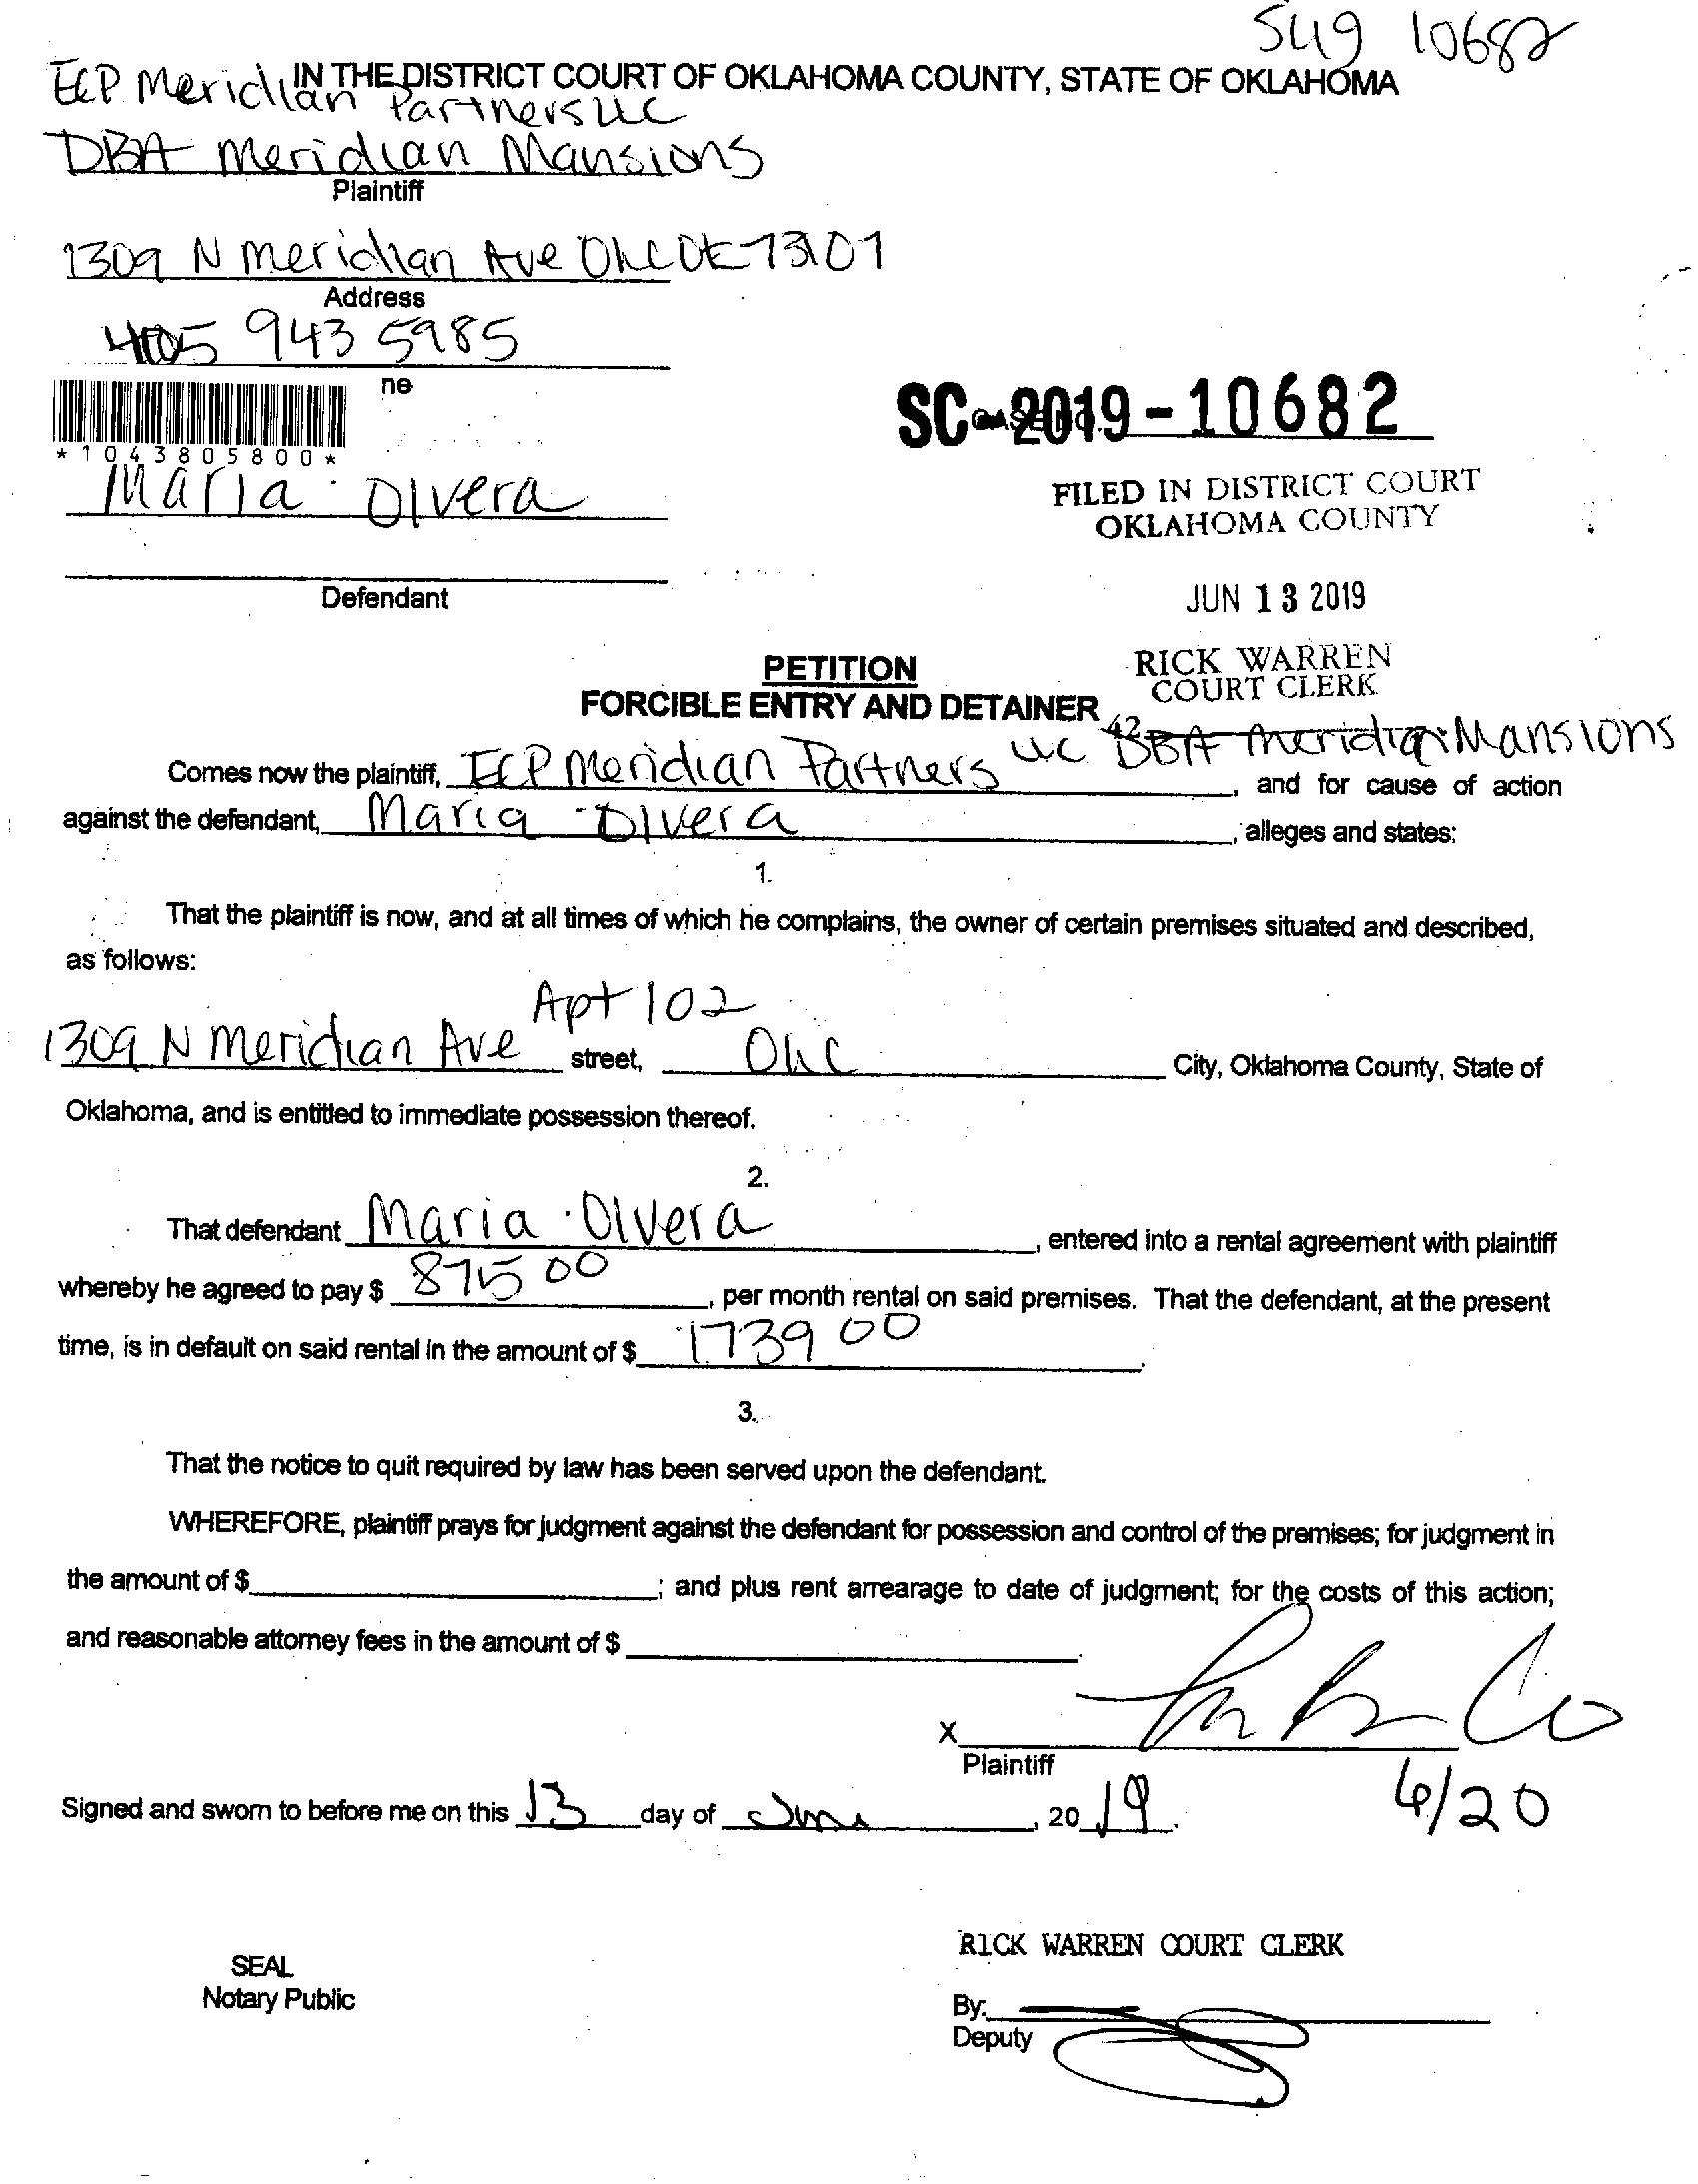 10682
IN THE DISTRICT COURT OF OKLAHOMA COUNTY, STATE OF OKLAHOMA
Meridian Partners LLC
DBA Meridian Mansions
Plaintiff
1309 N Meridian Ave OKC OK 73107
Address
405 943 5985
ne
*1043805800*
SC-2019-10682
Maria Olvera
FILED IN DISTRICT COURT
OKLAHOMA COUNTY
Defendant
JUN 13 2019
RICK WARREN
COURT CLERK
42
PETITION
FORCIBLE ENTRY AND DETAINER
Comes now the plaintiff, Meridian Partners LLC DBA Meridian Mansions, and for cause of action
against the defendant, Maria Olvera, alleges and states:
1.
That the plaintiff is now, and at all times of which he complains, the owner of certain premises situated and described,
as follows:
Apt 102
1309 N Meridian Ave street, OKC City, Oklahoma County, State of
Oklahoma, and is entitled to immediate possession thereof.
2.
That defendant Maria Olvera, entered into a rental agreement with plaintiff
whereby he agreed to pay $ 875 00, per month rental on said premises. That the defendant, at the present
time, is in default on said rental in the amount of $ 1739 00.
3.
That the notice to quit required by law has been served upon the defendant.
WHEREFORE, plaintiff prays for judgment against the defendant for possession and control of the premises; for judgment in
the amount of $; and plus rent arrearage to date of judgment; for the costs of this action;
and reasonable attorney fees in the amount of $.
X
Plaintiff
Signed and sworn to before me on this 13 day of June, 20 19.
6/20
RICK WARREN COURT CLERK
SEAL
Notary Public
By:
Deputy